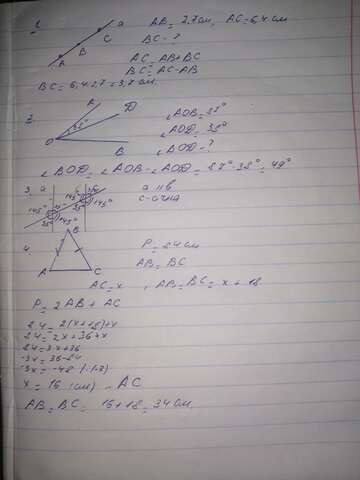 1.
a
A B C
AB = 2,7 см, AC = 6,4 см
BC - ?
AC = AB + BC
BC = AC - AB
BC = 6,4 - 2,7 = 3,7 см.
2.
A
D
38°
O
B
∠AOB = 87°
∠AOD = 38°
∠BOD - ?
∠BOD = ∠AOB - ∠AOD = 87° - 38° = 49°
3. a
145° 35° 145°
a || b
145° 35° 145°
4.
B
A C
P = 84 см
AB = BC
AC = x , AB = BC = x + 18
P = 2AB + AC
84 = 2(x+18)+x
84 = 2x + 36 + x
84 = 3x + 36
-3x = 36 - 84
-3x = -48 (:(-3)
x = 16 (см) - AC
AB = BC = 16 + 18 = 34 см.